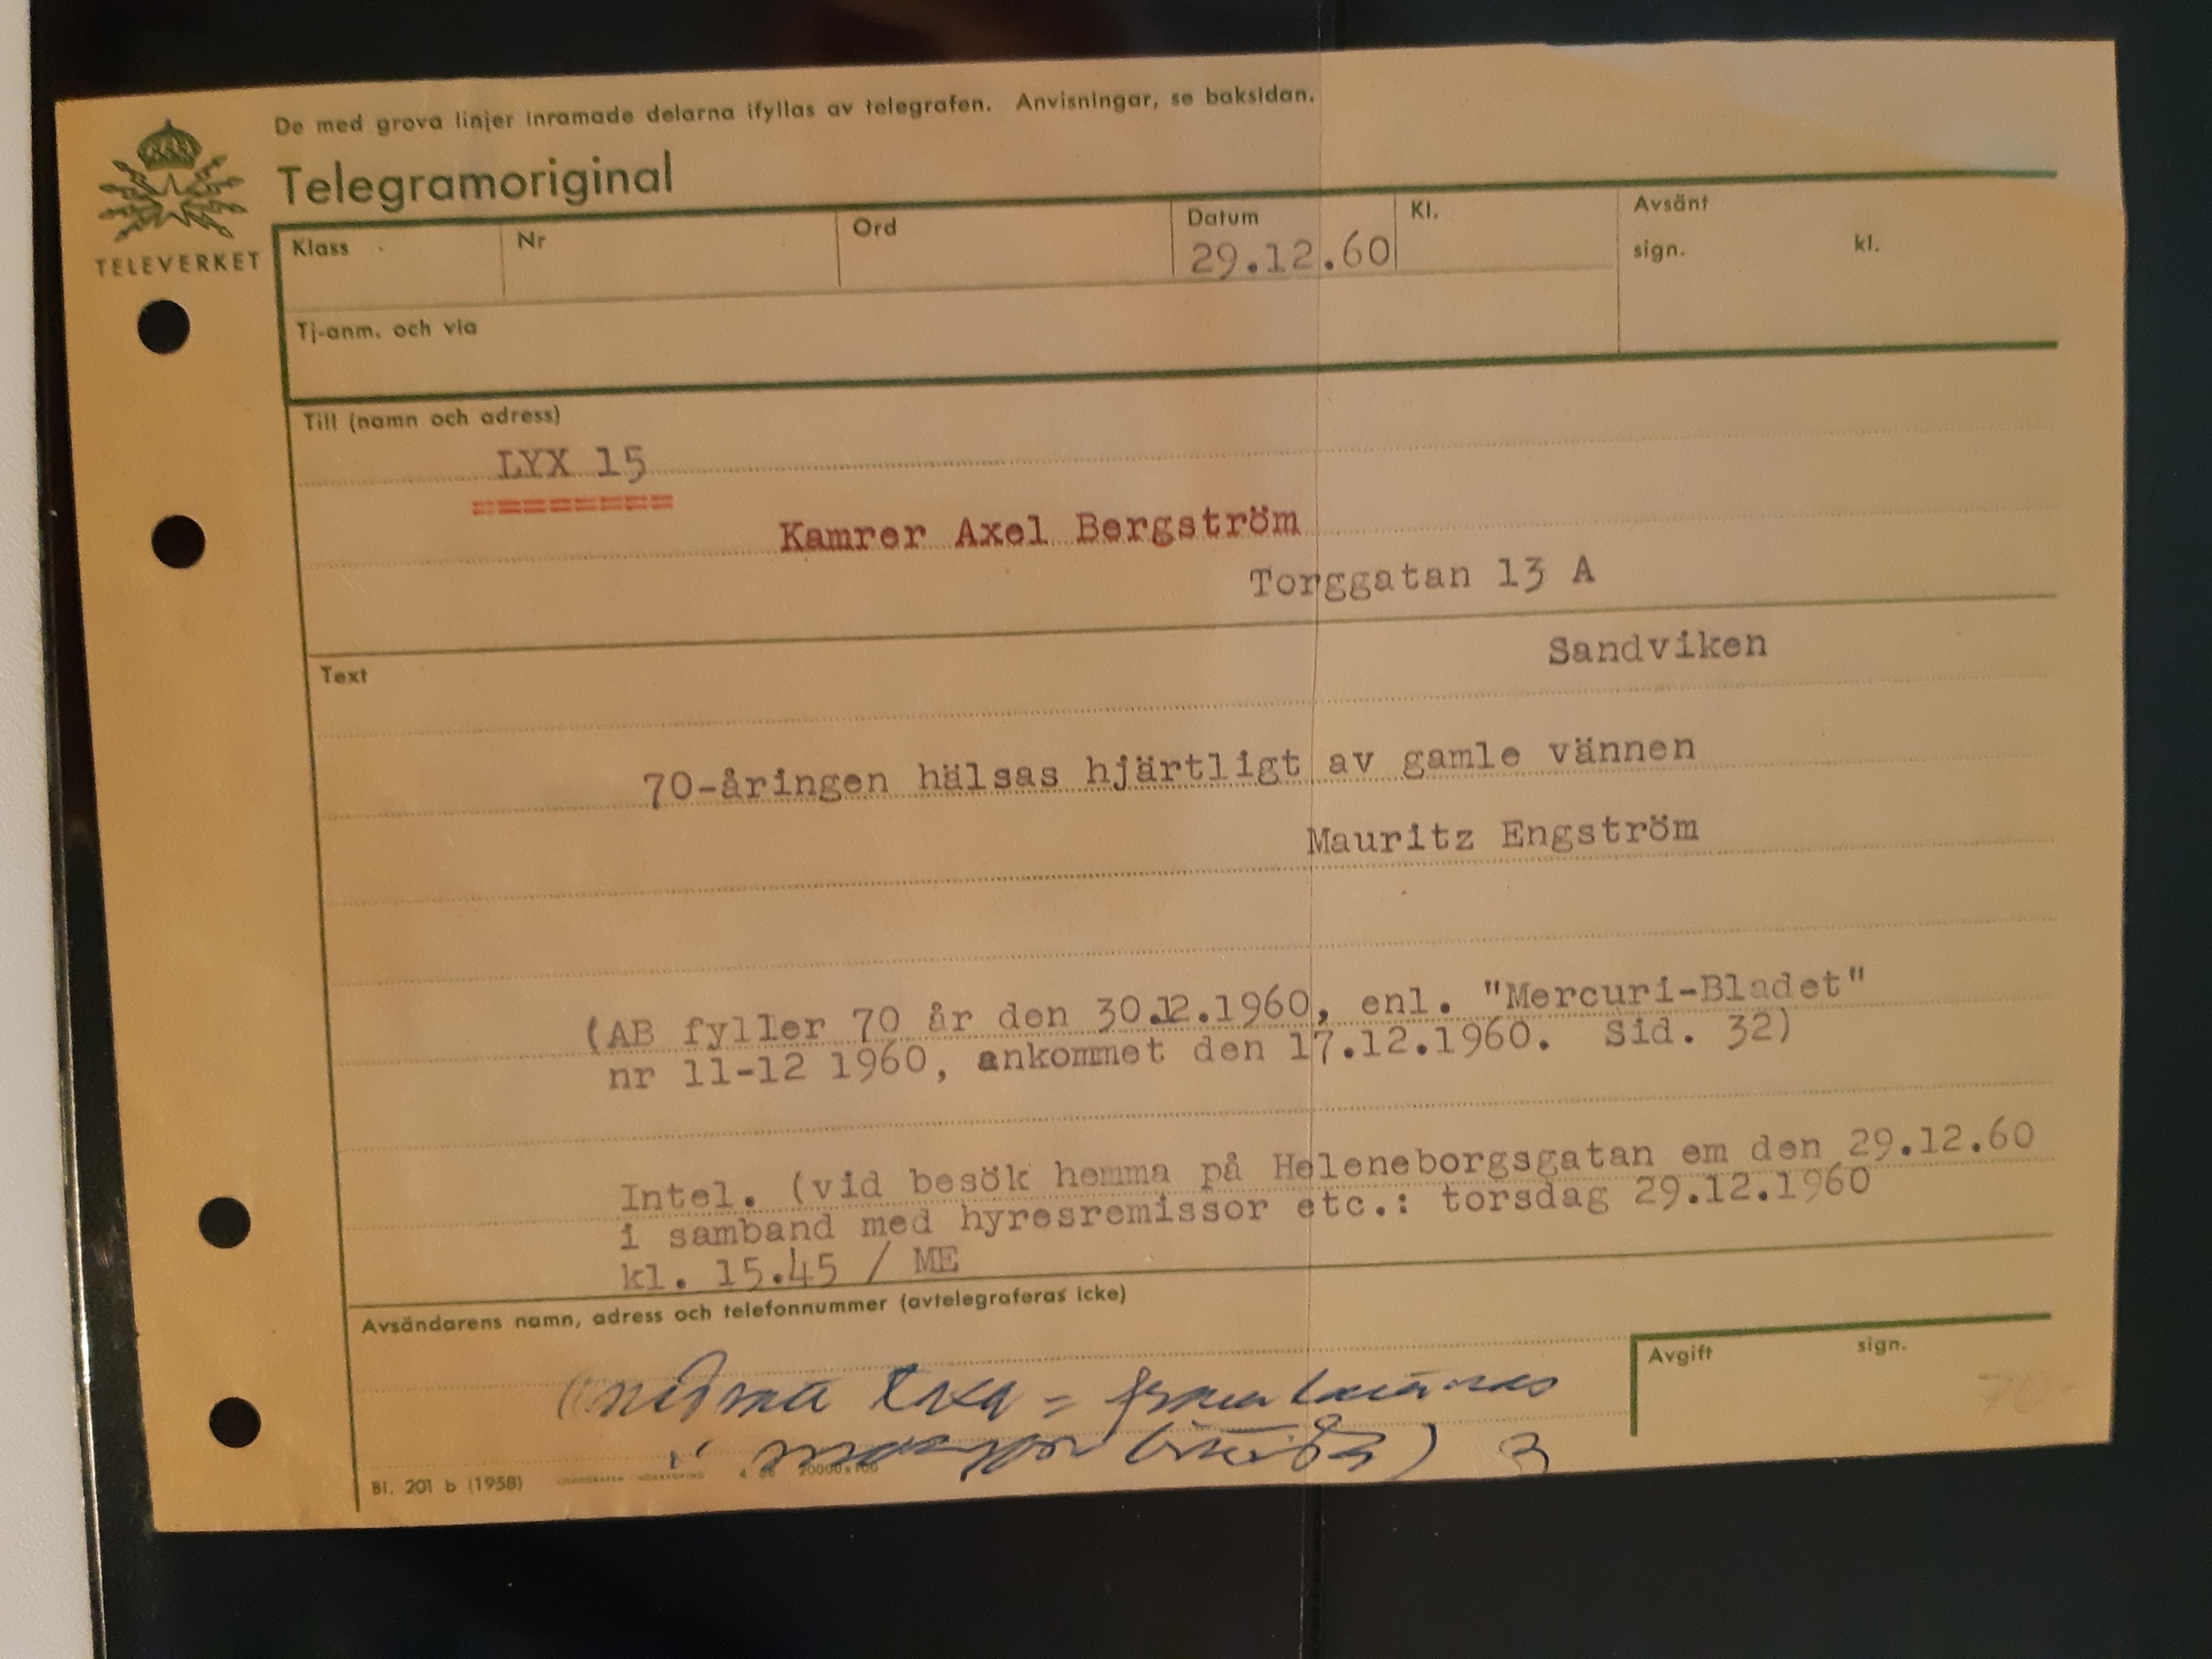 De med grova linjer inramade delarna ifyllas av telegrafen. Anvisningar, se baksidan.
Telegramoriginal
TELEVERKET
Klass
Nr
Ord
Datum
29.12.60
Kl.
Avsänt
sign. kl.
Tj-anm. och via
Till (namn och adress)
LYX 15
=========
Kamrer Axel Bergström
Torggatan 13 A
Sandviken
Text
70-åringen hälsas hjärtligt av gamle vännen
Mauritz Engström
(AB fyller 70 år den 30.12.1960, enl. "Mercuri-Bladet"
nr 11-12 1960, ankommet den 17.12.1960. Sid. 32)
Intel. (vid besök hemma på Heleneborgsgatan em den 29.12.60
i samband med hyresremissor etc.: torsdag 29.12.1960
kl. 15.45 / ME
Avsändarens namn, adress och telefonnummer (avtelegraferas icke)
taxa =
i
Avgift sign.
70
Bl. 201 b (1958)